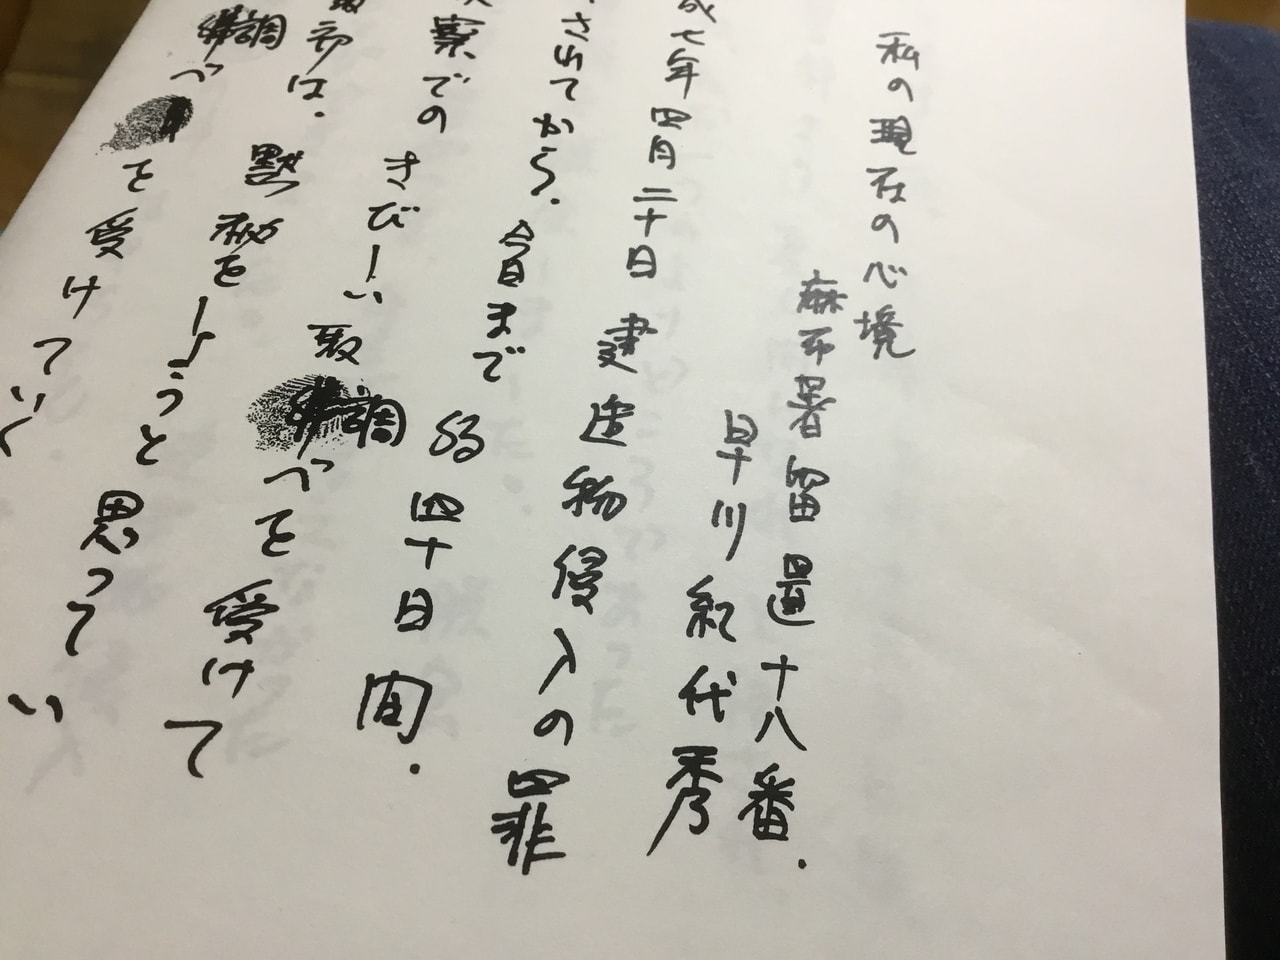 私の現在の心境
麻布署留置十八番.
早川紀代秀
成七年四月二十日建造物侵入の罪
されてから.今日まで約四十日間.
察でのきびしい取調べを受けて
初は.黙秘をしようと思ってい
調べを受けていく